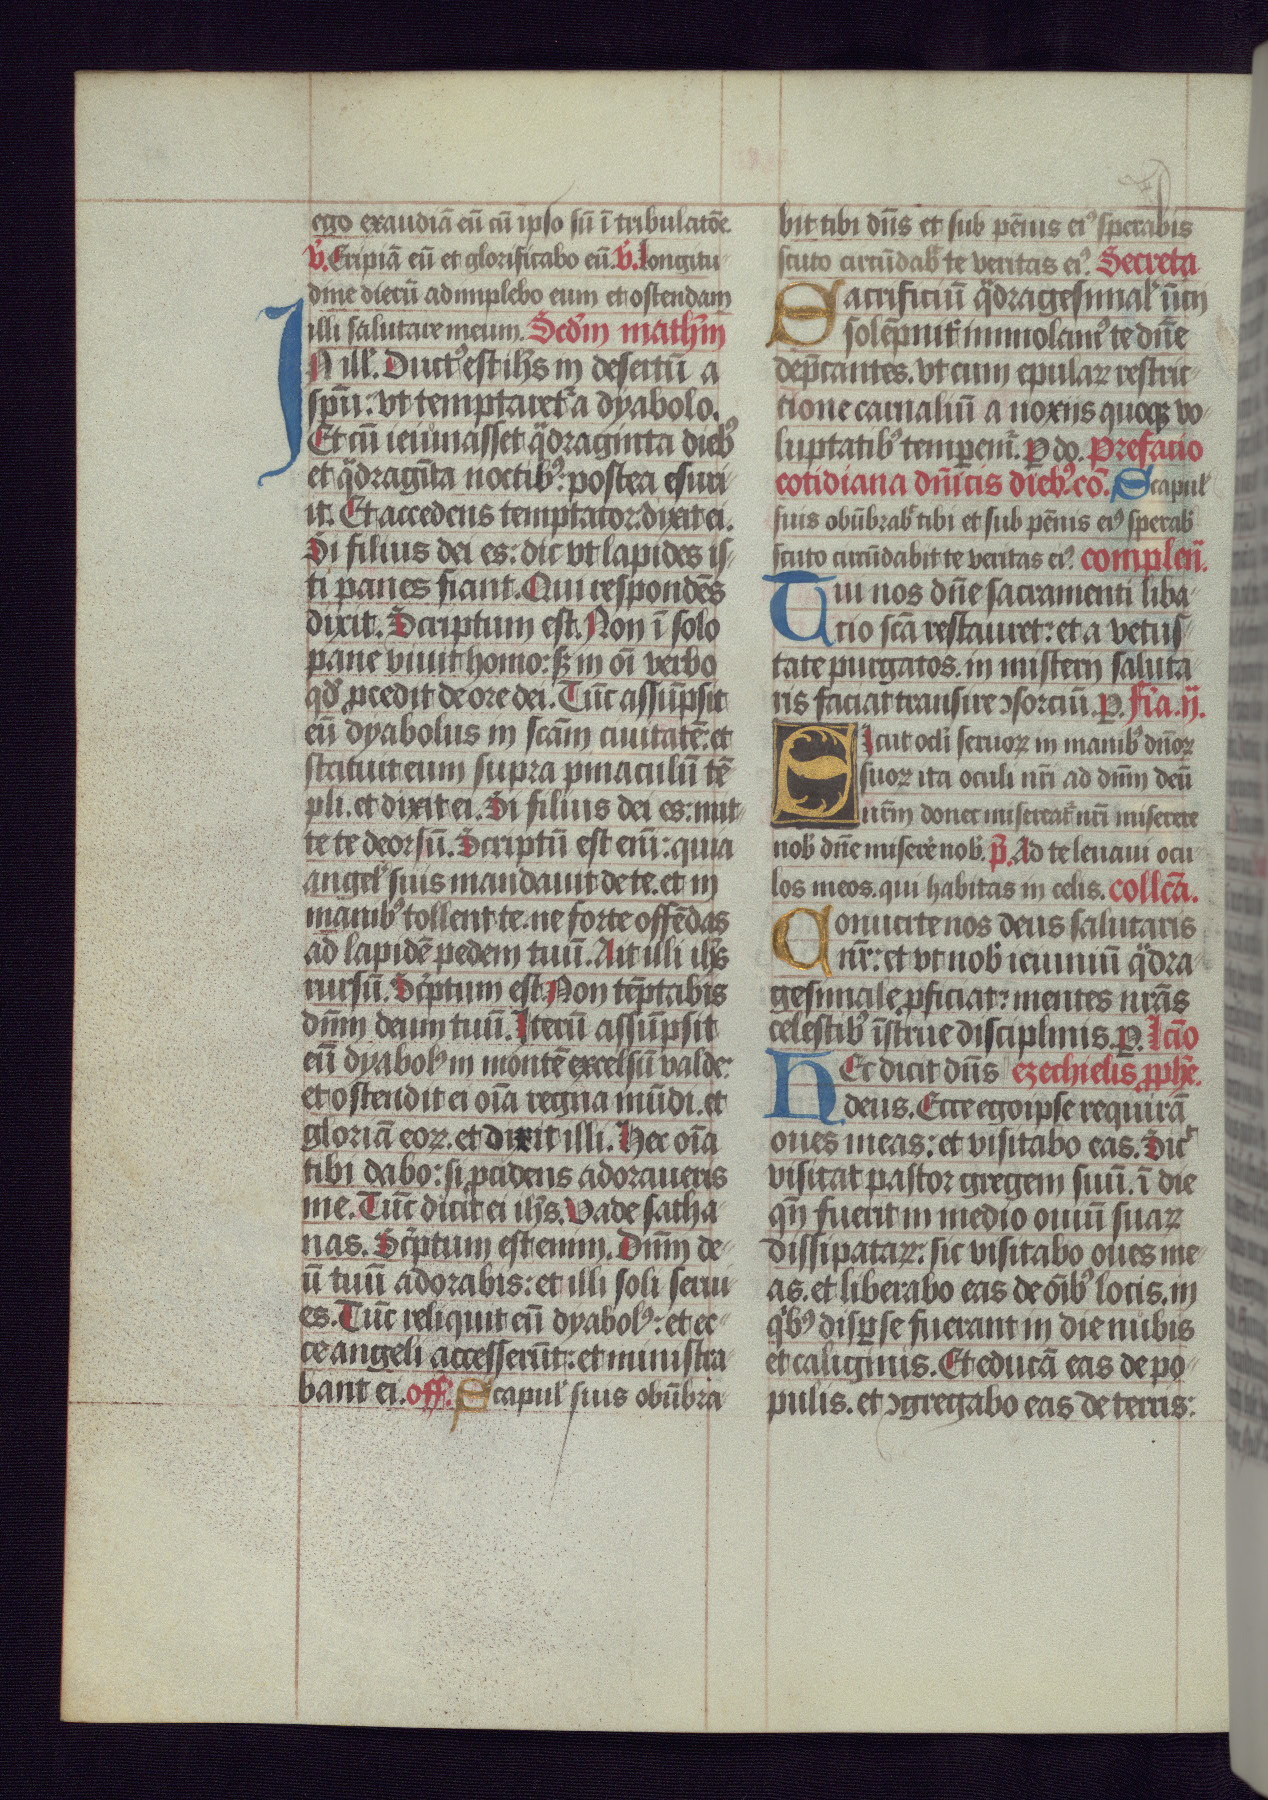 ego exaudiā eū cū ipso sū ī tribulatōe
v̄. Eripiā eū et glorificabo eū. v̄. longitu
dine dierū adimplebo eum et ostendam
illi salutare meum. Scd̄m math̄m
IN ill'. Duct᷒ est ih̄s in desertū a
sp̄u: vt temptaret᷑ a dyabolo.
Et cū ieiunasset q̄draginta dieb᷒
et q̄dragīta noctib᷒: postea esuri
it. Et accedens temptator: dixit ei.
Si filius dei es: dic vt lapides is
ti panes fiant. Qui respondēs
dixit. Scriptum est. Non ī solo
pane viuit homo: sꝫ in oī verbo
qd̄ ꝓcedit de ore dei. Tūc assūpsit
eū dyabolus in scām ciuitatē: et
statuit eum supra pinaculū tē
pli. et dixit ei. Si filius dei es: mit
te te deorsū. Scriptū est enī: quia
angel' suis mandauit de te. et in
manib᷒ tollent te. ne forte offēdas
ad lapidē pedem tuū. Ait illi ih̄s
rursū. Sc̄ptum est. Non tēptabis
dn̄m deum tuū. Iterū assūpsit
eū dyabol᷒ in montē excelsū valde:
et ostendit ei oīa regna mūdi. et
gloriā eoꝝ. et dixit illi. Hec oīa
tibi dabo: si ꝓcidens adoraueris
me. Tūc dicit ei ih̄s. Vade satha
nas. Sc̄ptum est enim. Dn̄m de
ū tuū adorabis: et illi soli serui
es. Tūc reliquit eū dyabol᷒: et ec
ce angeli accesserūt: et ministra
bant ei. off. Scapul' suis obūbra
bit tibi dn̄s et sub pēnis ei᷒ sperabis
scuto circūdab' te veritas ei᷒. Secreta
Sacrificiū q̄dragesimal' inicii
solēpnit᷑ immolam᷒ te dn̄e
dep̄cantes. vt cum epulaꝝ restric
tione carnaliū a noxiis quoqꝫ vo
luptatib᷒ temꝑem᷑. P do. Prefacio
cotidiana dn̄icis dieb᷒. cō. Scapul'
suis obūbrab' tibi et sub pēnis ei᷒ sperab'
scuto circūdabit te veritas ei᷒. complen̄.
Tui nos dn̄e sacramenti liba
cio scā restauret: et a vetus
tate purgatos. in misterii saluta
ris faciat transire ꝯsorciū. P. fīa. ij.
Sicut ocli seruoꝝ in manib᷒ dn̄oꝝ
suoꝝ ita oculi nr̄i ad dn̄m deū
nr̄m donec misereat᷑ nr̄i miserere
nob' dn̄e miserē nob'. p̄. Ad te leuaui ocu
los meos. qui habitas in celis. collcā.
Conuerte nos deus salutaris
nr̄: et vt nob' ieiuniū q̄dra
gesimale ꝓficiat: mentes nrās
celestib᷒ īstrue disciplinis. P. lcīo
Hec dicit dn̄s ezechielis ꝓph̄e.
deus. Ecce ego ipse requirā
oues meas: et visitabo eas. Sic᷑
visitat pastor gregem suū. ī die
qn̄ fuerit in medio ouiū suaꝝ
dissipataꝝ: sic visitabo oues me
as. et liberabo eas de oīb᷒ locis. in
qͥb᷒ disꝑse fuerant in die nubis
et caliginis. Et educā eas de po
pulis. et ꝯgregabo eas de terris: